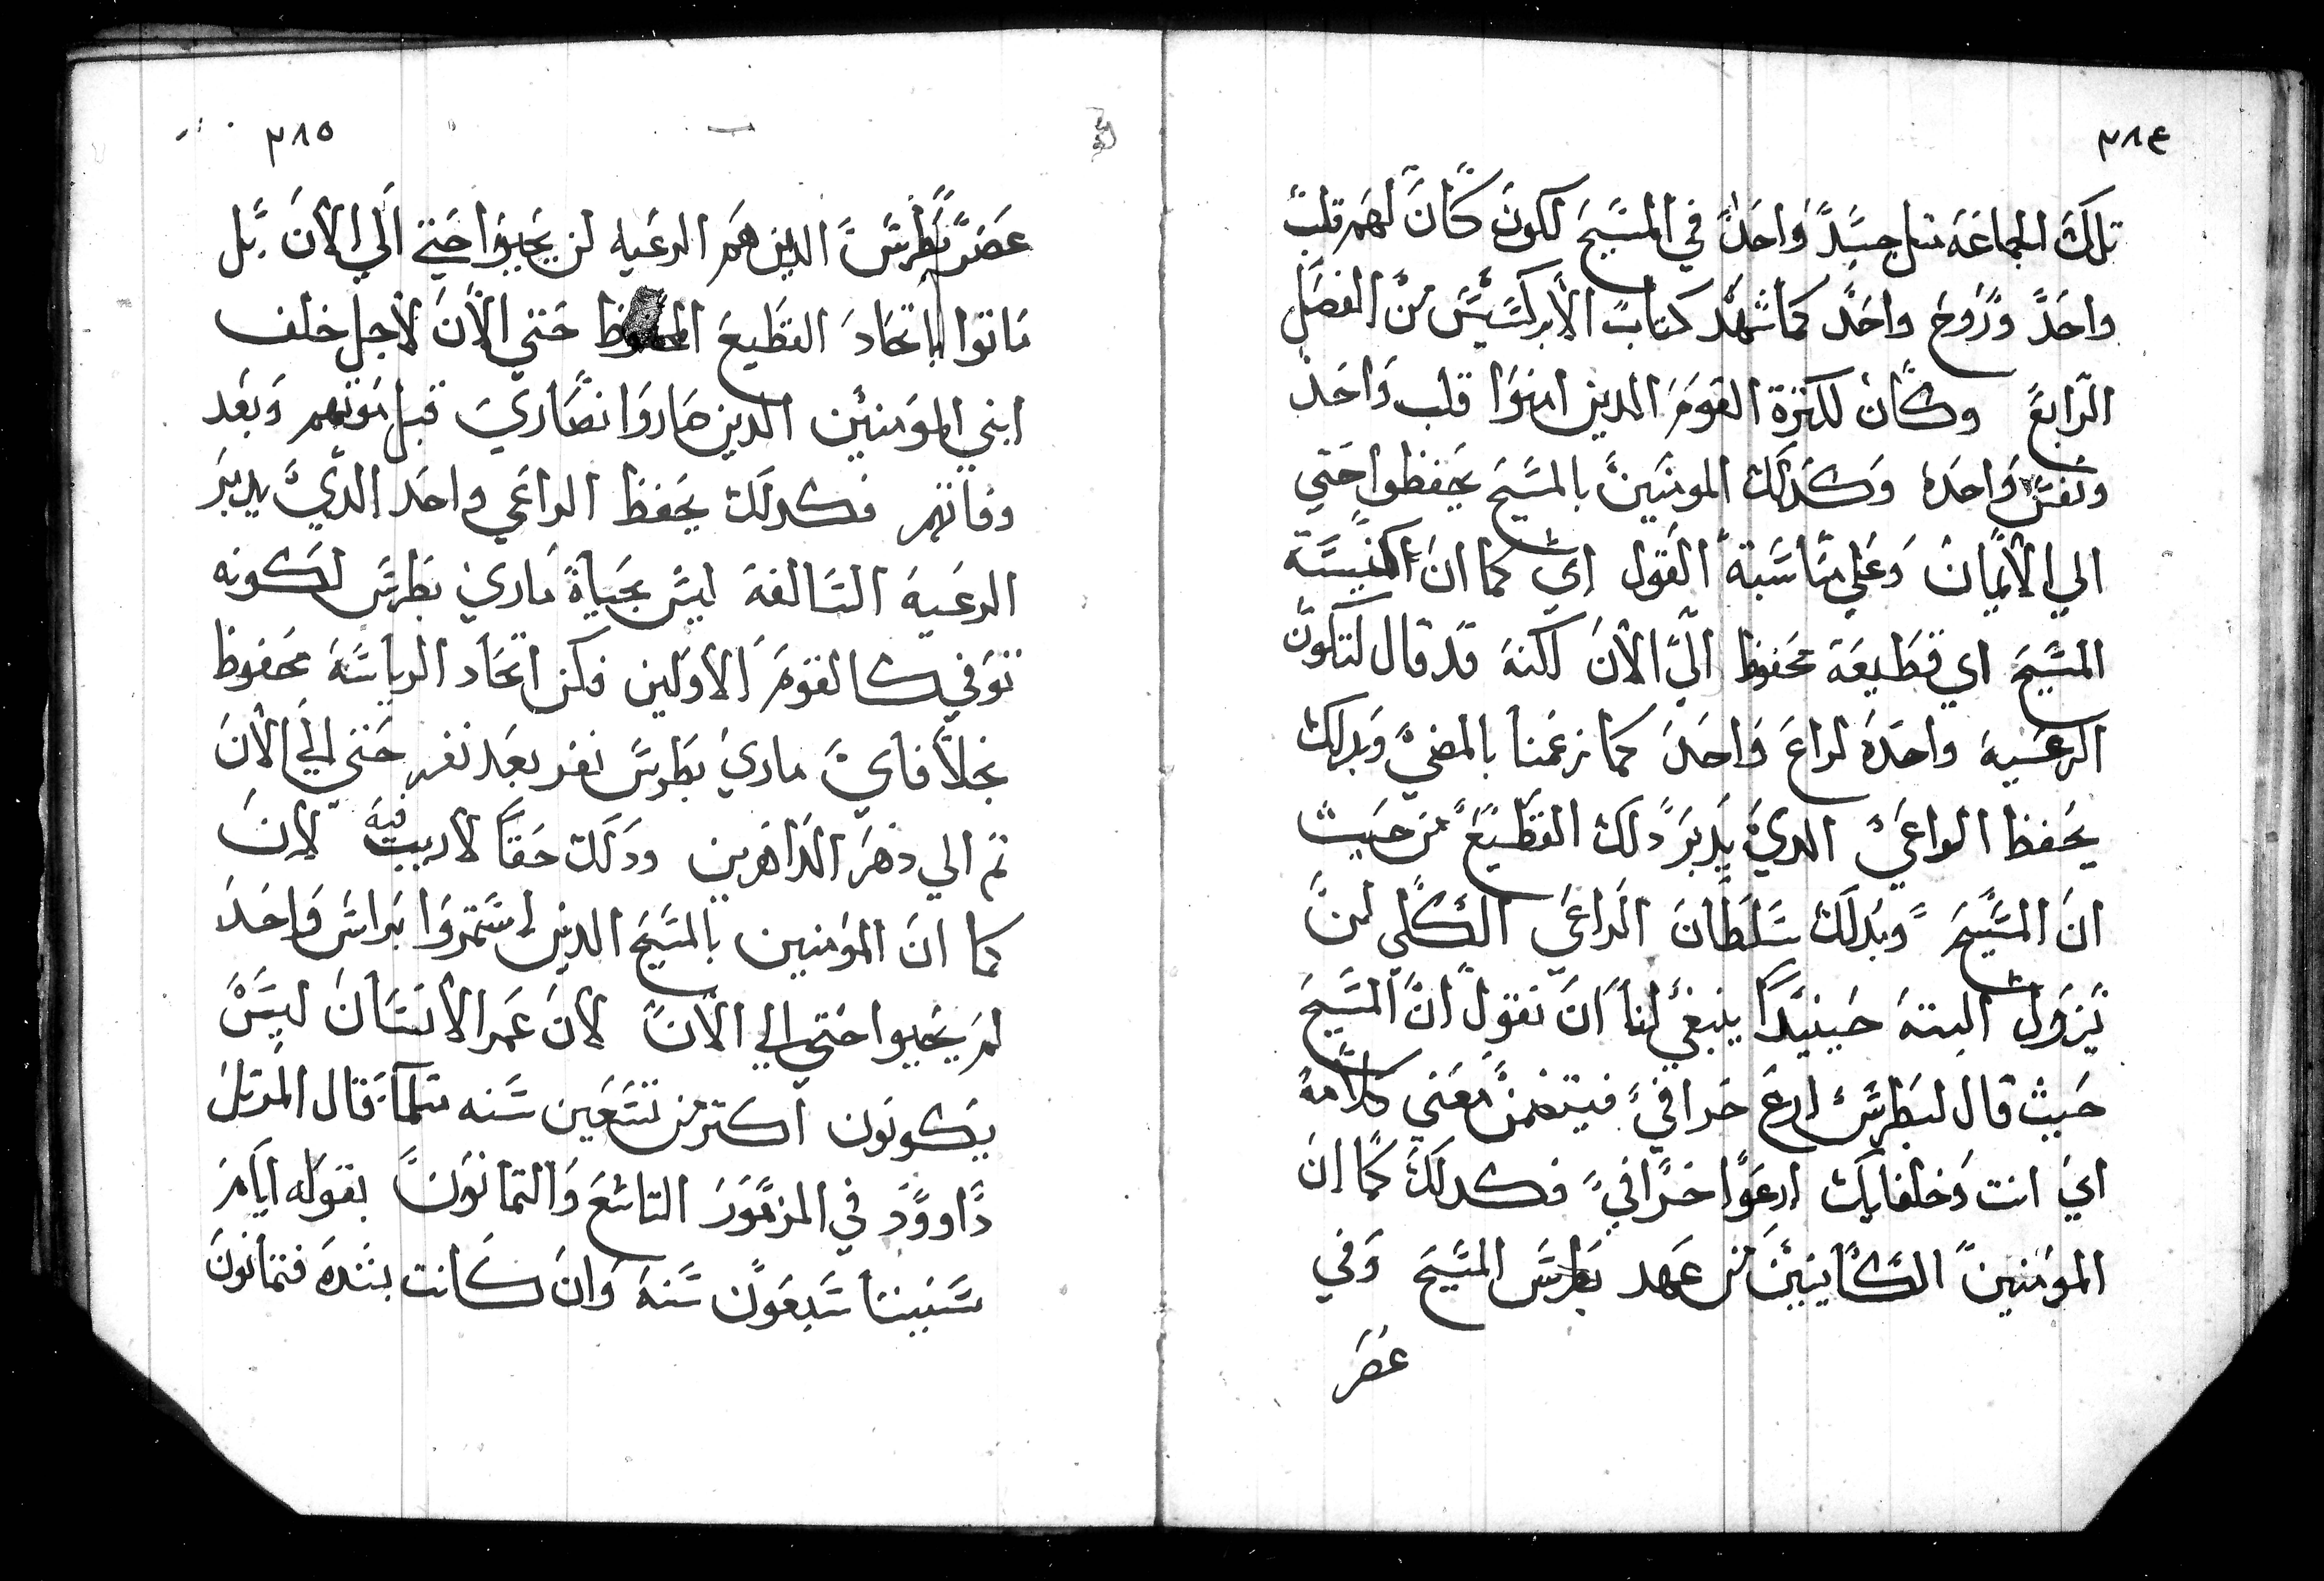 ٣٨٤
تلك الجماعه مثل جسد واحد في المسيح لكون كان لهم قلب
واحد وروح واحد كما شهد كتاب الابركسيس من الفصل
الرابع وكان لكثرة القوم الدين امنوا قلب واحد
ونفس واحده وكدلك المومنين بالمسيح يحفظوا حتي
الي الايمان وعلي مناسبة القول اي كما ان كنيسة
المسيح اي قطيعه محفوظ الي الان لكنه قد قال لتكون
الرعيه واحده لراع واحد كما زعمنا بالمضي وبدلك
يحفظ الراعي الدي يدبر دلك القطيع من حيث
ان المسيح وبدلك سلطان الراعي الكلي لن
يزول البته حينيدا ينبغي لنا ان نقول ان المسيح
حيث قال لبطرس ارع خرافي فيتضمن معني كلامه
اي انت وخلفايك ارعوا خرافي فكدلك كما ان
المومنين الكاينين من عهد بطرس المسيح وفي
عصر
٣٨٥
عصر بطرس الدين هم الرعيه لن يحيوا حتي الي الان بل
ماتوا باتحاد القطيع المحفوظ حتي الان لاجل خلف
ابني المومنين الدين صاروا نصاري قبل موتهم وبعد
وفاتهم فكدلك يحفظ الراعي واحد الدي يدبر
الرعيه السالفه ليس بحياة ماري بطرس لكونه
توفي كالقوم الاولين فكن اتحاد الرياسه محفوظ
بخلافاي ماري بطرس نفر بعد نفر حتي الي الان
ثم الي دهر الداهرين ودلك حقا لا ريب فيه لان
كما ان المومنين بالمسيح الدين استمروا براس واحد
لم يحيوا حتي الي الان لان عمر الانسان ليس
يكونون اكثر من تسعين سنه مثلما قال المرتل
داوود في المزمور التاسع والتمانون بقوله ايام
سنيننا سبعون سنه وان كانت بشده فتمانون